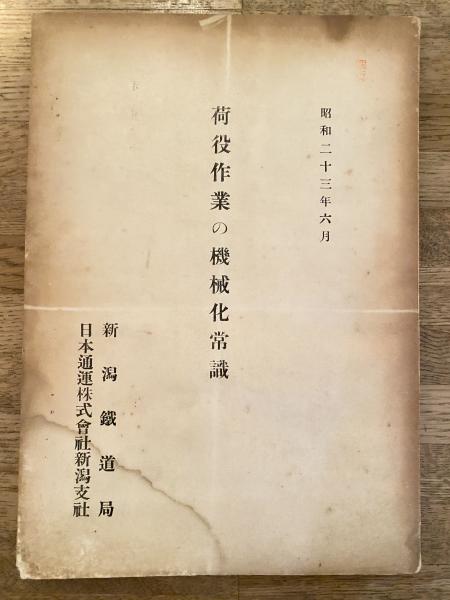 昭和二十三年六月
荷役作業の機械化常識
新潟鐵道局
日本通運株式會社新潟支社